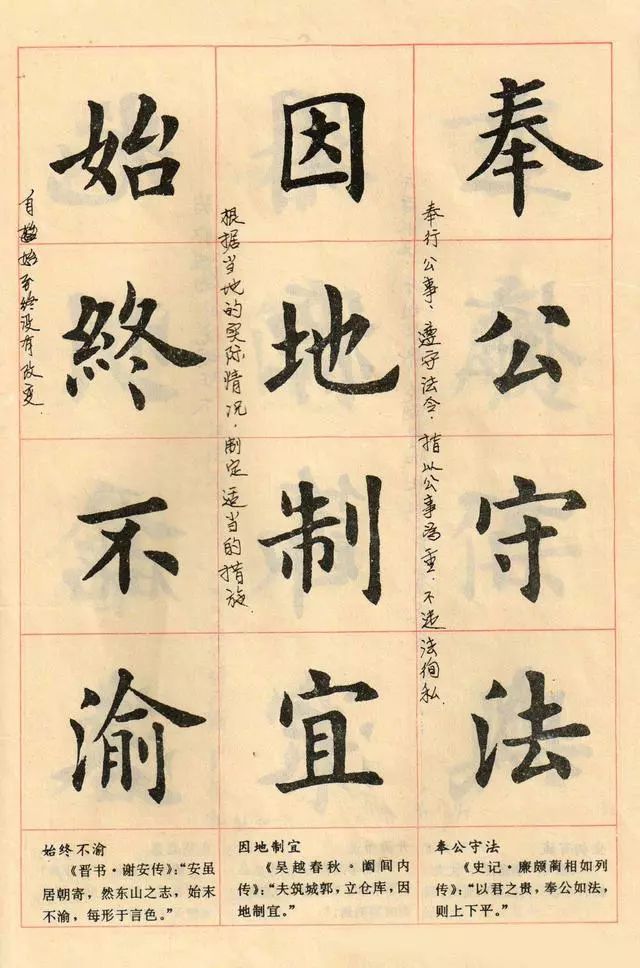 奉公守法
奉行公事、遵守法令，指以公事为重，不违法徇私。
因地制宜
根据当地的实际情况，制定适当的措施。
始終不渝
自始至终没有改变。
奉公守法
《史记·廉颇蔺相如列
传》：“以君之贵，奉公如法，
则上下平。”
因地制宜
《吴越春秋·阖闾内
传》：“夫筑城郭，立仓库，因
地制宜。”
始终不渝
《晋书·谢安传》：“安虽
居朝寄，然东山之志，始末
不渝，每形于言色。”